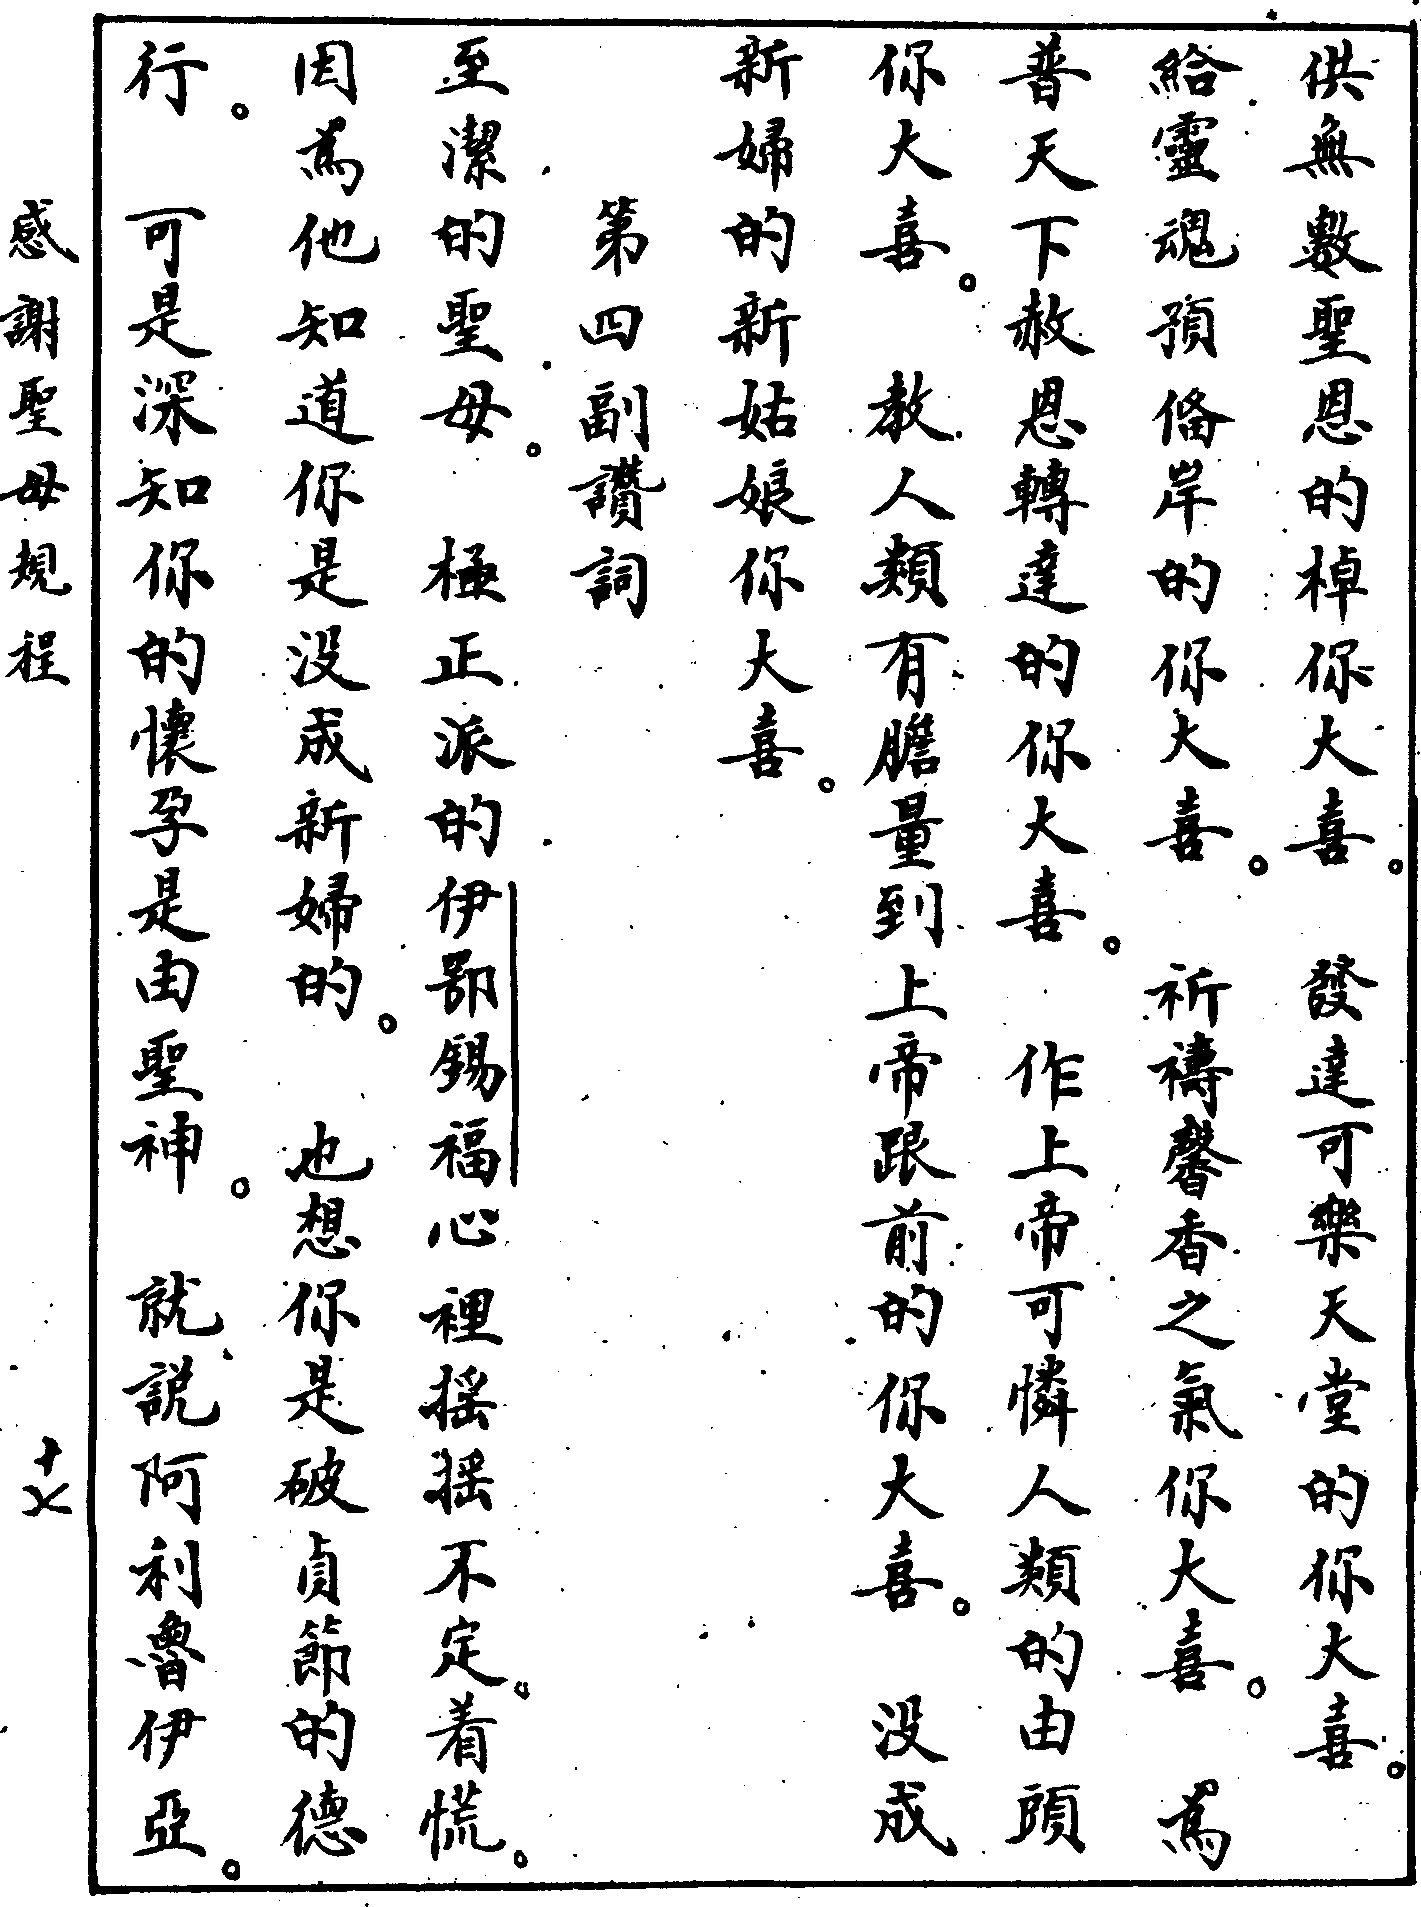 供無數聖恩的棹你大喜。　發達可樂天堂的你大喜。
給靈魂預俻岸的你大喜。　祈禱馨香之氣你大喜。　爲
普天下赦恩轉達的你大喜。　作上帝可憐人類的由頭
你大喜。　教人類有膽量到上帝跟前的你大喜。　没成
新婦的新姑娘你大喜。
第四副讚詞
至潔的聖母。　極正派的伊鄂錫福心裡揺揺不定。着慌。
因爲他知道你是没成新婦的。　也想你是破貞節的德
行。　可是深知你的懷孕是由聖神。　就説阿利魯伊亞。
感謝聖母規程
十乂